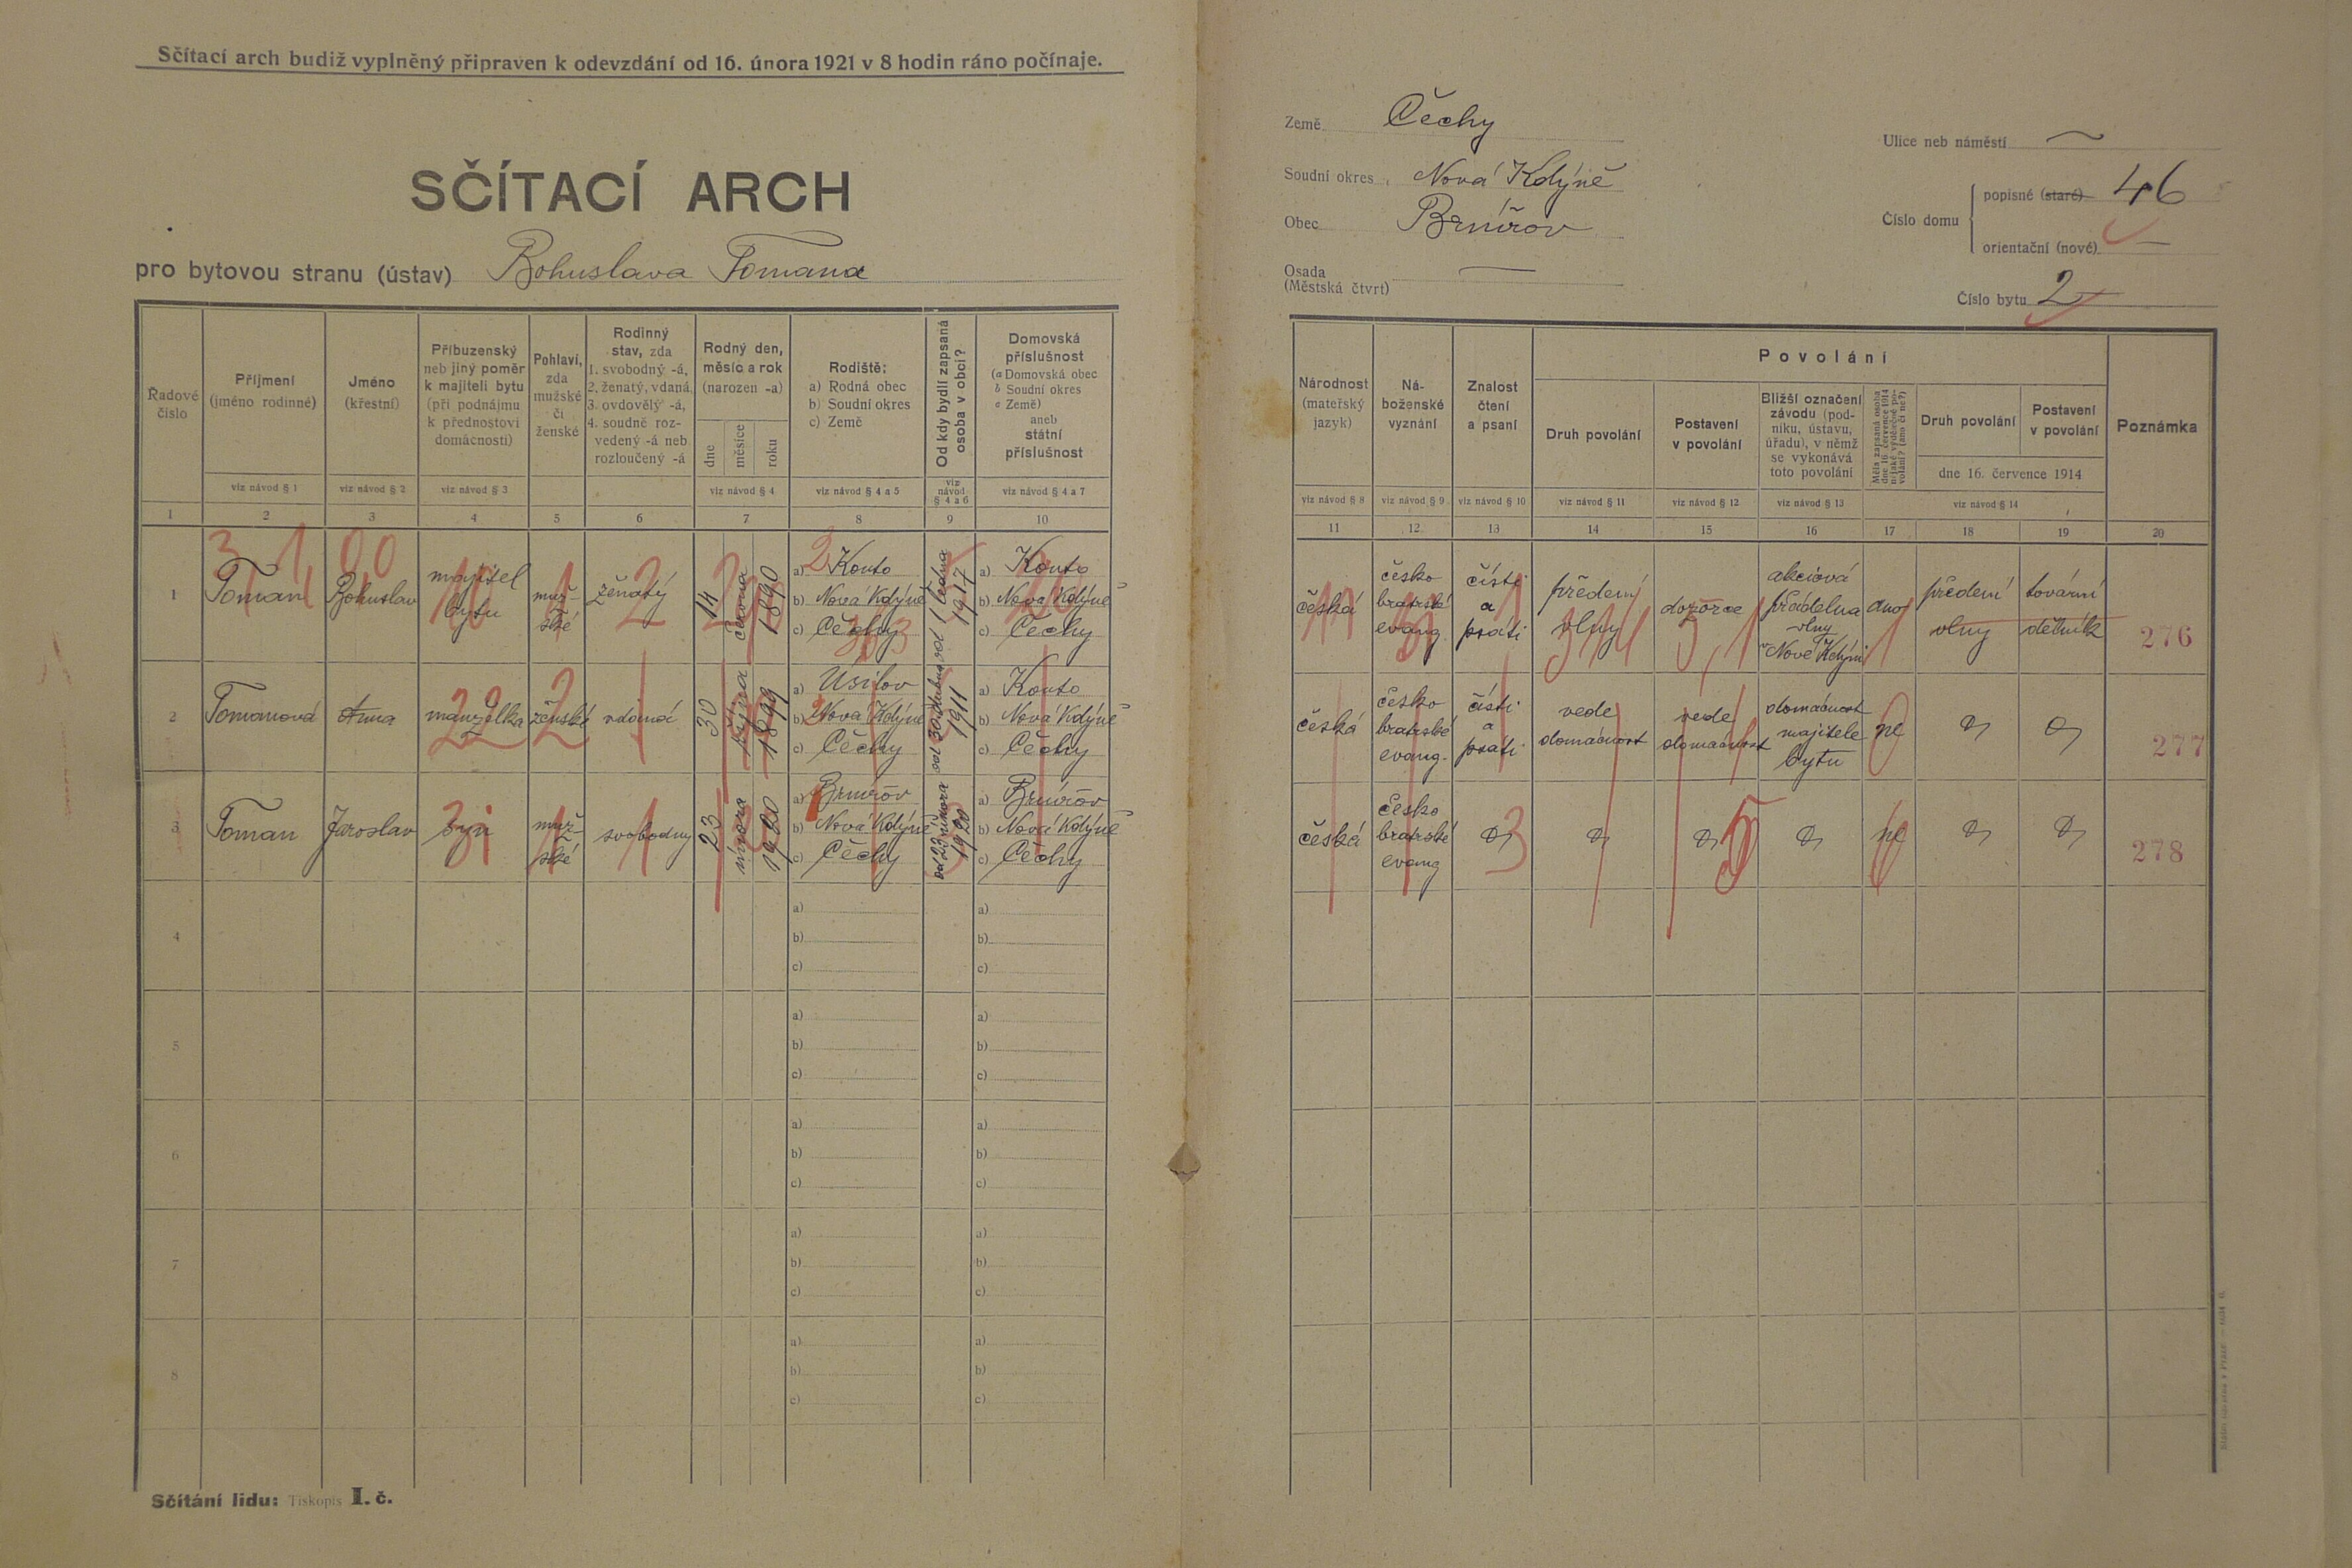 Sčítací arch budiž vyplněný připraven k odevzdání od 16. února 1921 v 8 hodin ráno počínaje.
SČÍTACÍ ARCH
pro bytovou stranu (ústav) Bohuslava Tomana
Země Čechy
Soudní okres Nová Kdýně
Obec Brnířov
Osada
(Městská čtvrt)
Ulice neb náměstí
Číslo domu
popisné (staré) 46
orientační (nové) —
Číslo bytu 2
Řadové číslo
Příjmení (jméno rodinné)
viz návod § 1
Jméno (křestní)
viz návod § 2
Příbuzenský neb jiný poměr k majiteli bytu (při podnájmu k přednostovi domácnosti)
viz návod § 3
Pohlaví, zda mužské či ženské
Rodinný stav, zda
1. svobodný -á,
2. ženatý, vdaná,
3. ovdovělý -á,
4. soudně rozvedený -á neb rozloučený -á
Rodný den, měsíc a rok (narozen -a)
dne
měsíce
roku
viz návod § 4
Rodiště:
a) Rodná obec
b) Soudní okres
c) Země
viz návod § 4 a 5
Od kdy bydlí zapsaná osoba v obci?
viz návod § 4 a 6
Domovská příslušnost
(a Domovská obec
b Soudní okres
c Země)
aneb
státní příslušnost
viz návod § 4 a 7
1 2 3 4 5 6 7 8 9 10
1 Toman Bohuslav majitel bytu mužské ženatý 14 června 1890
a) Kouto
b) Nová Kdýně
c) Čechy
od 1 ledna 1917
a) Kouto
b) Nová Kdýně
c) Čechy
2 Tomanová Anna manželka ženské vdaná 30 října 1899
a) Úsilov
b) Nová Kdýně
c) Čechy
od 30 dubna 1911
a) Kouto
b) Nová Kdýně
c) Čechy
3 Toman Jaroslav syn mužské svobodný 23 února 1920
a) Brnířov
b) Nová Kdýně
c) Čechy
od 23 února 1920
a) Brnířov
b) Nová Kdýně
c) Čechy
4
a) a)
b) b)
c) c)
5
a) a)
b) b)
c) c)
6
a) a)
b) b)
c) c)
7
a) a)
b) b)
c) c)
8
a) a)
b) b)
c) c)
Sčítání lidu: Tiskopis I. č.
Národnost (mateřský jazyk)
viz návod § 8
Náboženské vyznání
viz návod § 9
Znalost čtení a psaní
viz návod § 10
Povolání
Druh povolání
viz návod § 11
Postavení v povolání
viz návod § 12
Bližší označení závodu (podniku, ústavu, úřadu), v němž se vykonává toto povolání
viz návod § 13
Měla zapsaná osoba dne 16. července 1914 nějaké výdělečné povolání? (ano či ne?)
Druh povolání
Postavení v povolání
dne 16. července 1914
viz návod § 14
Poznámka
11 12 13 14 15 16 17 18 19 20
česká česko bratrské evang. čísti a psáti předení vlny dozorce akciová přádelna vlny v Nové Kdýni ano předení vlny tovární dělník 276
česká česko bratrské evang. čísti a psáti vede domácnost vede domácnost domácnost majitele bytu ne 277
česká česko bratrské evang ne 278